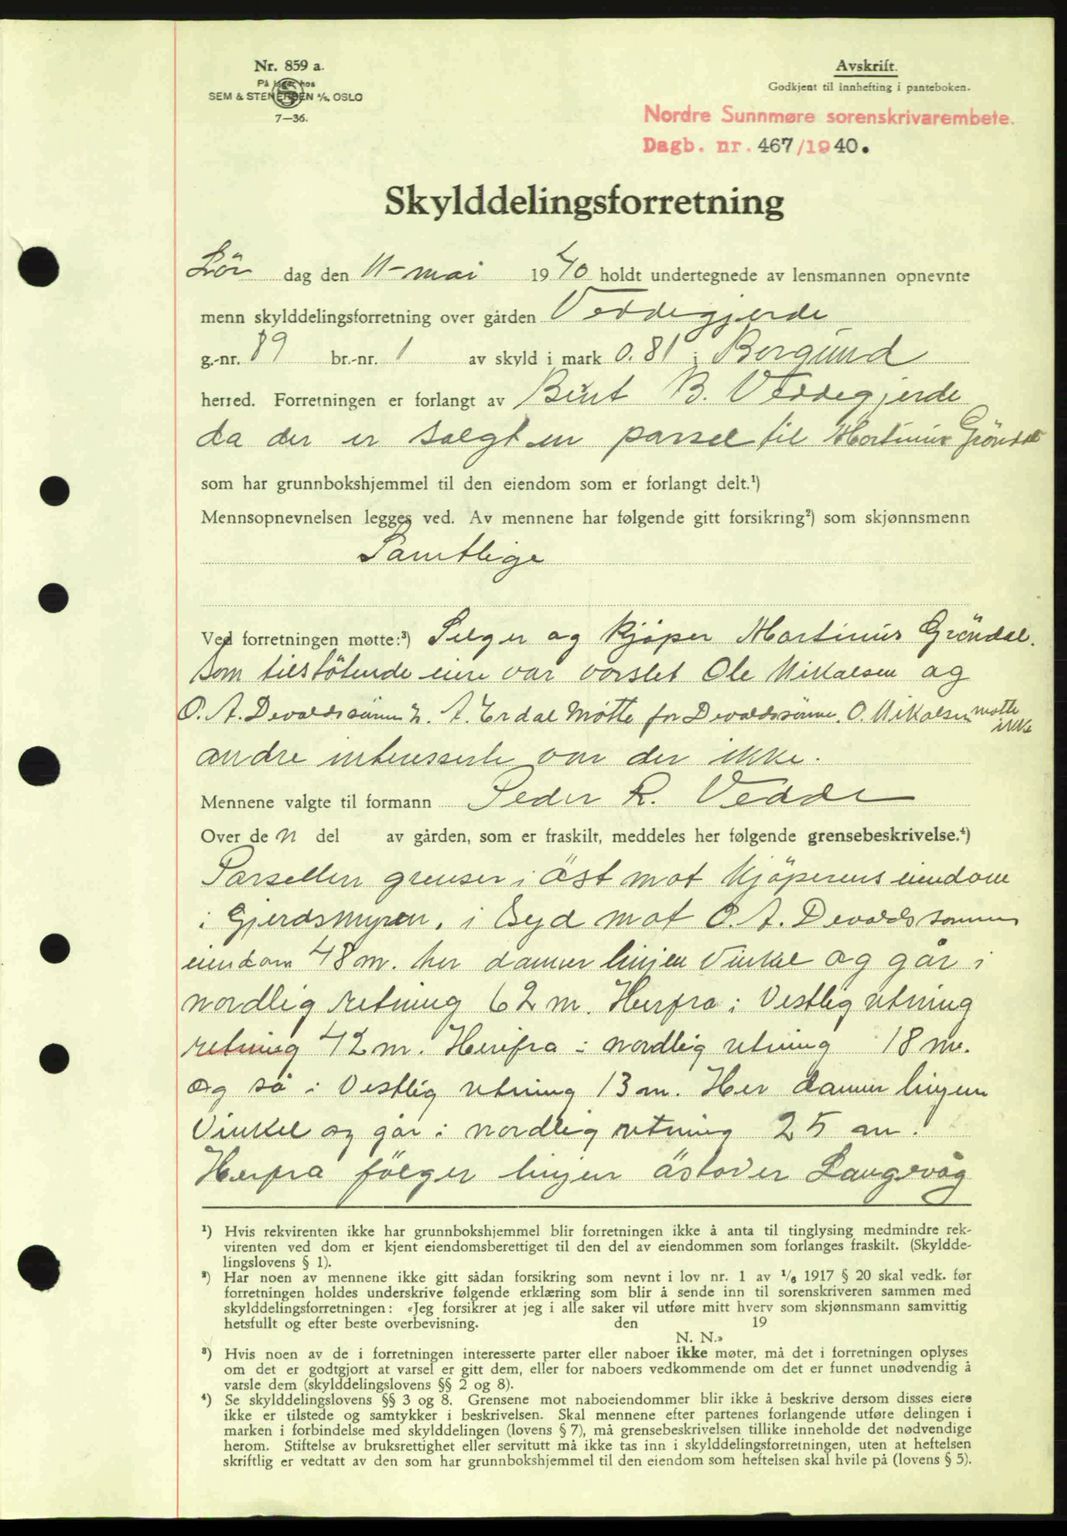 Nr. 859 a.
På lager hos
SEM & STENERSEN A/S, OSLO
7—36.
Avskrift.
Godkjent til innhefting i panteboken.
Nordre Sunnmøre sorenskrivarembete.
Dagb. nr. 467/1940.
Skylddelingsforretning
Lör dag den 11-mai 1940 holdt undertegnede av lensmannen opnevnte
menn skylddelingsforretning over gården Veddegjerde
g.-nr. 89 br.-nr. 1 av skyld i mark 0.81 i Borgund
herred. Forretningen er forlangt av Bernt B. Veddegjerde
da der er solgt en parsel til Martinus Gröndal
som har grunnbokshjemmel til den eiendom som er forlangt delt.¹)
Mennsopnevnelsen legges ved. Av mennene har følgende gitt forsikring²) som skjønnsmenn
Samtlige
Ved forretningen møtte:³) Selger og kjöper Martinus Gröndal.
Som tilstötende eiere var varslet Ole Mikalsen og
O. A. Devoldssönner. A. Erdal Møtte for Devoldssönner. O. Mikalsen møtte ikke
andre interesserte var der ikke.
Mennene valgte til formann Peder R. Vedde
Over de n del av gården, som er fraskilt, meddeles her følgende grensebeskrivelse.⁴)
Parsellen grenser i öst mot kjöperens eiendom
i Gjerdsmyren. i Syd mot O. A. Devoldssönners
eiendom 48 m. her danner linjen Vinkel og går i
nordlig retning 62 m. Herfra i Vestlig retning
retning 42 m. Herifra i nordlig retning 18 m.
og så i Vestlig retning 13 m. Her danner linjen
Vinkel og går i nordlig retning 25 m.
Herfra fölger linjen östover Langevåg
¹) Hvis rekvirenten ikke har grunnbokshjemmel blir forretningen ikke å anta til tinglysing medmindre rek-
virenten ved dom er kjent eiendomsberettiget til den del av eiendommen som forlanges fraskilt. (Skyldde-
lingslovens § 1).
²) Har noen av mennene ikke gitt sådan forsikring som nevnt i lov nr. 1 av 1/6 1917 § 20 skal vedk. før
forretningen holdes underskrive følgende erklæring som blir å sende inn til sorenskriveren sammen med
skylddelingsforretningen: «Jeg forsikrer at jeg i alle saker vil utføre mitt hverv som skjønnsmann samvittig
hetsfullt og efter beste overbevisning. den 19
N. N.»
³) Hvis noen av de i forretningen interesserte parter eller naboer ikke møter, må det i forretningen oplyses
om det er godtgjort at varsel er gitt dem, eller for naboers vedkommende om det er funnet unødvendig å
varsle dem (skylddelingslovens §§ 2 og 8).
⁴) Se skylddelingslovens §§ 3 og 8. Grensene mot naboeiendommer blir ikke å beskrive dersom disses eiere
ikke er tilstede og samtykker i beskrivelsen. Skal mennene efter partenes forlangende utføre delingen i
marken i forbindelse med skylddelingen (lovens § 7), må grensebeskrivelsen tillike inneholde det nødvendige
herom. Stiftelse av bruksrettighet eller servitutt må ikke tas inn i skylddelingsforretningen, uten at heftelsen
skriftlig er vedtatt av den som har grunnbokshjemmel til den eiendom som heftelsen skal hvile på (lovens § 5).